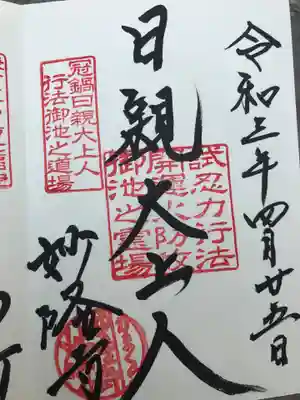 令和三年四月廿五日
日親大上人
冠鍋日親大上人
行法御池之道場
試忍力行法
御池之霊場
妙
寺